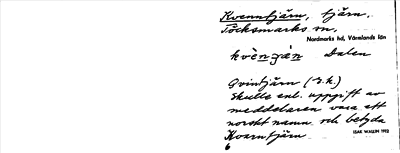 Kvenntjärn, tjärn.
Töcksmarks sn,
Nordmarks hd, Värmlands län
kvènʒán Dalen
Qvintjärn (J.k.)
Skulle enl. uppgift av
meddelaren vara ett
norskt namn och betyda
Kvarntjärn.
ISAK WALLIN 1912